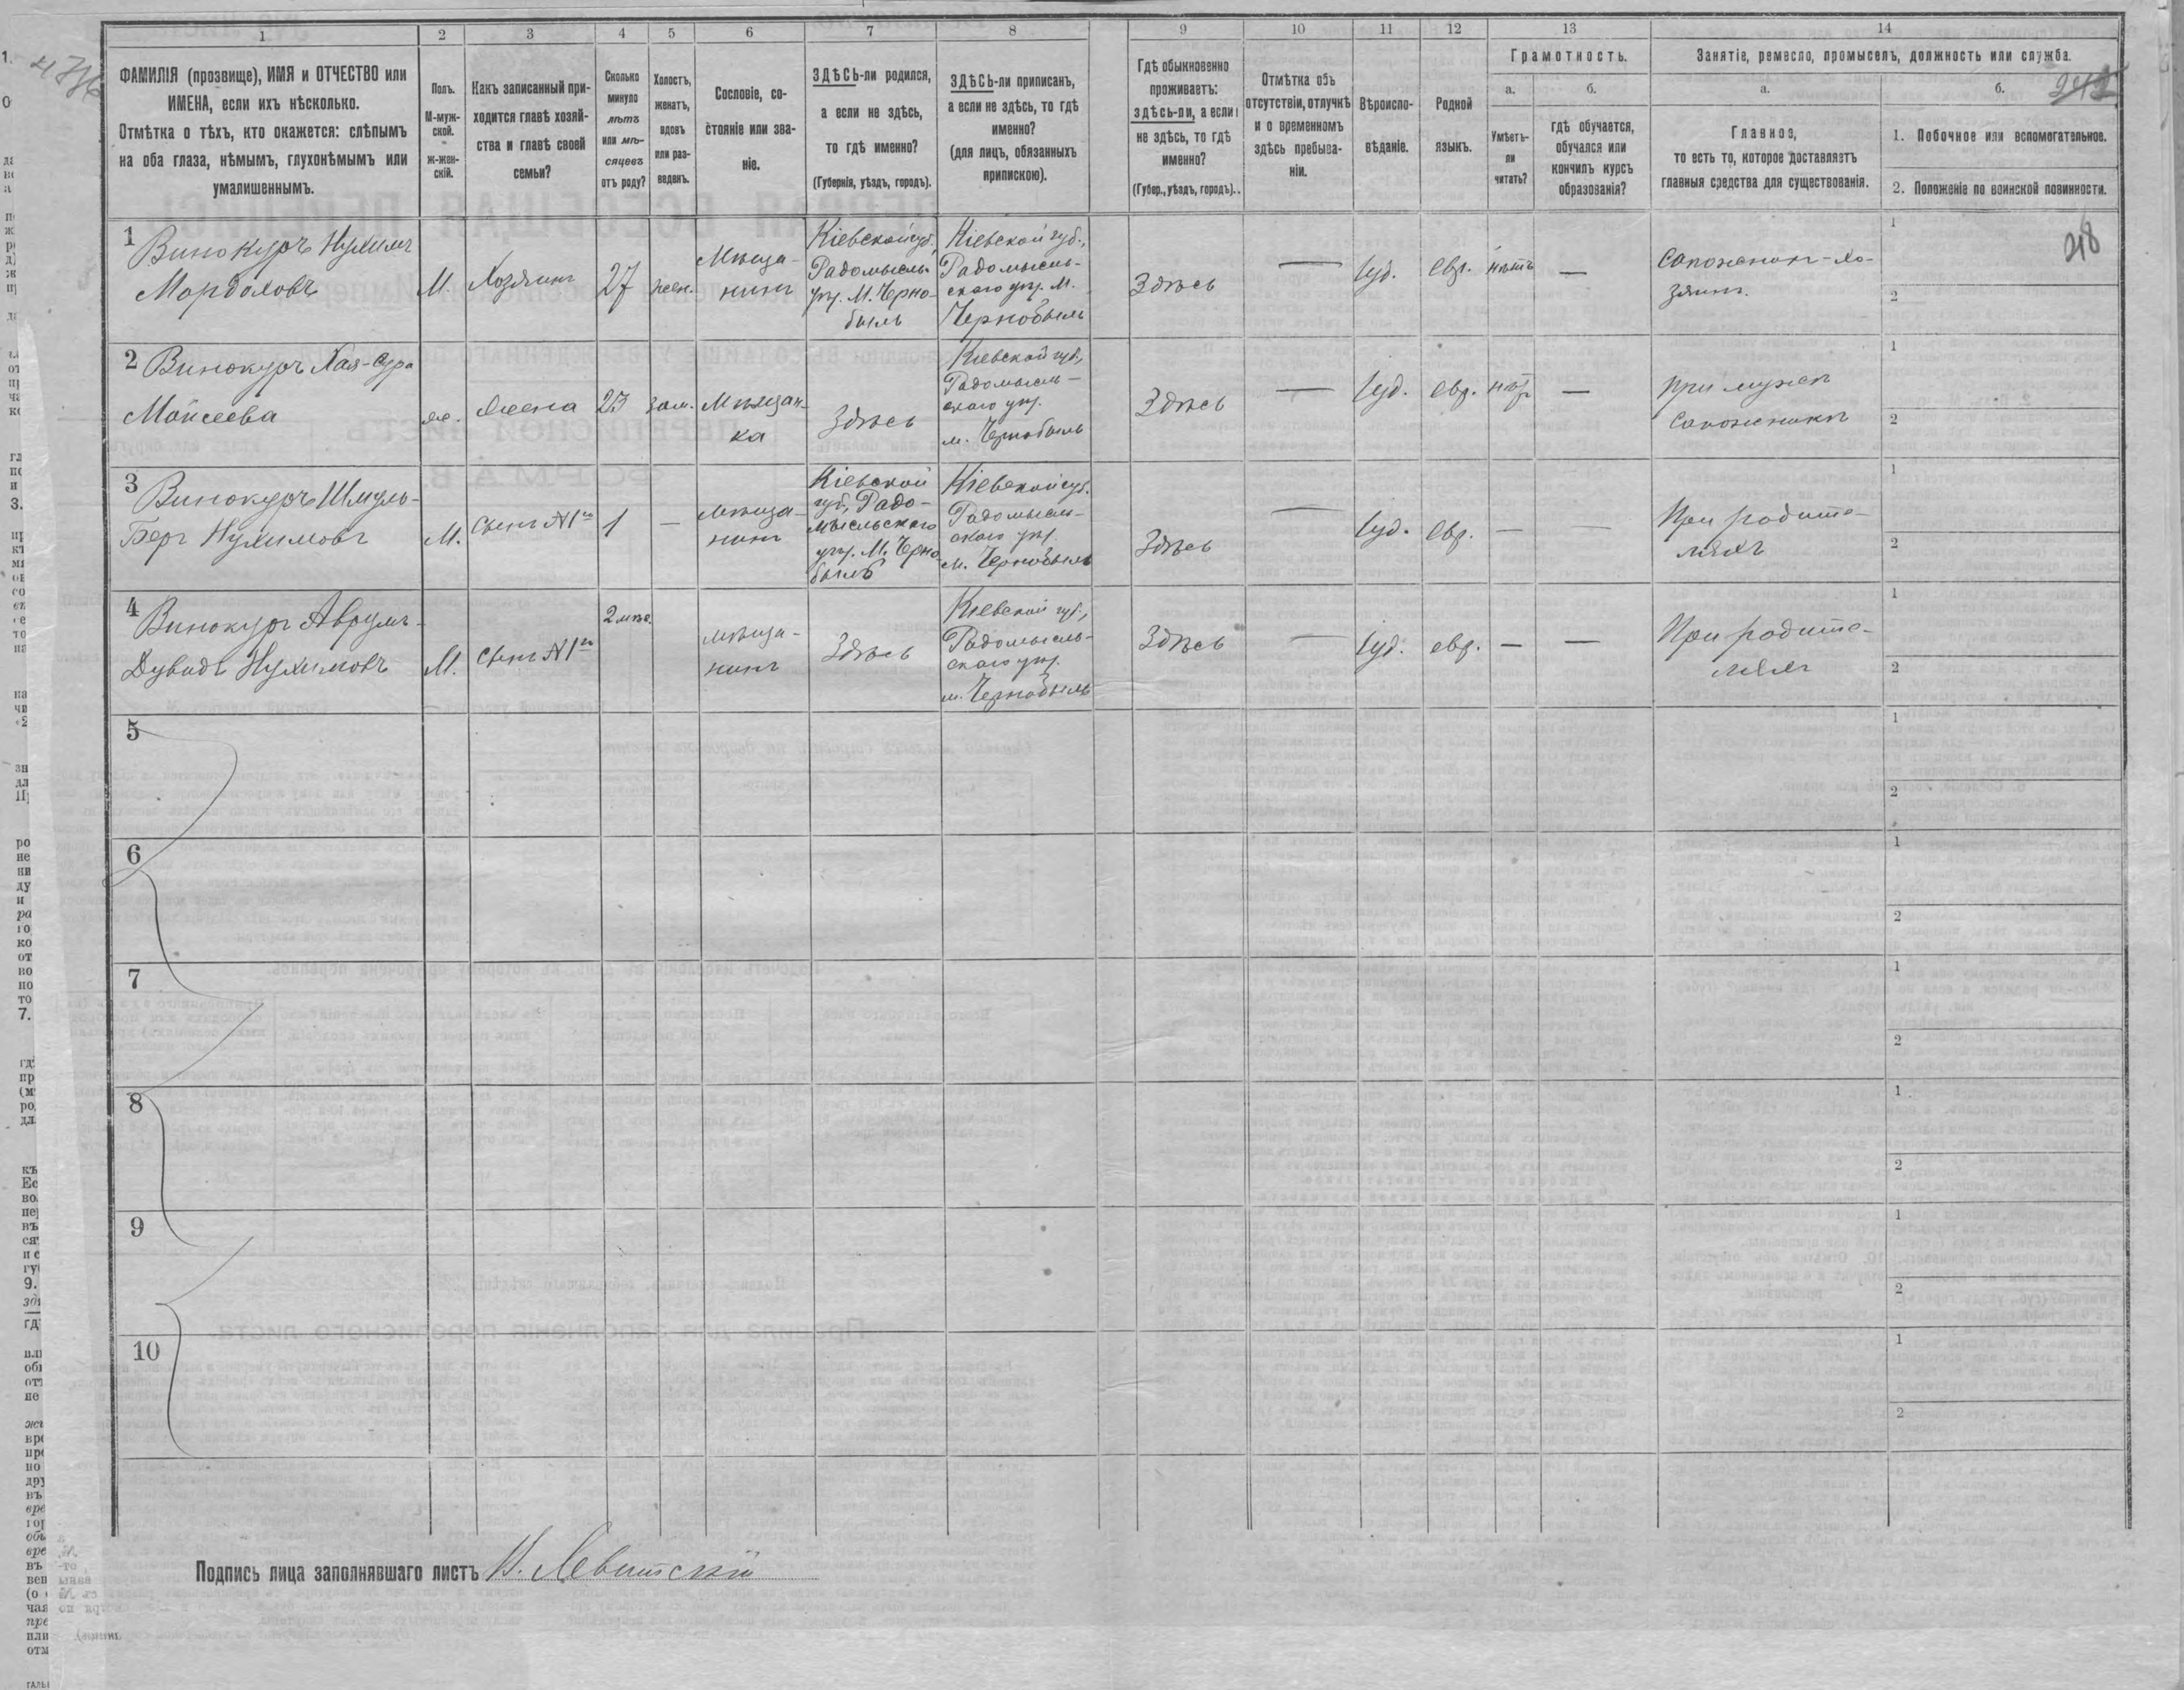 1 2 3 4 5 6 7 8 9 10 11 12 13 14
ФАМИЛІЯ (прозвище), ИМЯ и ОТЧЕСТВО или
ИМЕНА, если ихъ нѣсколько.
Отмѣтка о тѣхъ, кто окажется: слѣпымъ
на оба глаза, нѣмымъ, глухонѣмымъ или
умалишеннымъ.
Полъ.
М-муж-
ской.
ж-жен-
скій.
Какъ записанный при-
ходится главѣ хозяй-
ства и главѣ своей
семьи?
Сколько
минуло
лѣтъ
или мѣ-
сяцевъ
отъ роду?
Холостъ,
женатъ,
вдовъ
или раз-
веденъ.
Сословіе, со-
стояніе или зва-
ніе.
ЗДѢСЬ-ли родился,
а если не здѣсь,
то гдѣ именно?
(Губернія, уѣздъ, городъ).
ЗДѢСЬ-ли приписанъ,
а если не здѣсь, то гдѣ
именно?
(для лицъ, обязанныхъ
припискою).
Гдѣ обыкновенно
проживаетъ:
здѣсь-ли, а если
не здѣсь, то гдѣ
именно?
(Губер., уѣздъ, городъ).
Отмѣтка объ
отсутствіи, отлучкѣ
и о временномъ
здѣсь пребыва-
ніи.
Вѣроиспо-
вѣданіе.
Родной
языкъ.
Грамотность.
а.
Умѣетъ-
ли
читать?
б.
гдѣ обучается,
обучался или
кончилъ курсъ
образованія?
Занятіе, ремесло, промыселъ, должность или служба.
а.
Главное,
то есть то, которое доставляетъ
главныя средства для существованія.
б.
1. Побочное или вспомогательное.
2. Положеніе по воинской повинности.
218
1
Винокуръ Нухимъ
Мордоховъ
М.
Хозяинъ
27
жен.
Мѣща-
нинъ
Кіевской губ.,
Радомысль.
уѣз. М. Черно-
быль
Кіевской губ.,
Радомысль-
скаго уѣз. М.
Чернобыль
Здѣсь
—
Іуд.
евр.
нѣтъ
—
Сапожник-хо-
зяинъ.
1
2
2
Винокуръ Хая-Сура
Мойсеева
ж.
Жена
23
зам.
Мѣщан-
ка
Здѣсь
Кіевской губ.,
Радомысль-
скаго уѣз.
м. Чернобыль
Здѣсь
—
Іуд.
евр.
нѣт
—
При мужѣ
сапожникѣ
1
2
3
Винокуръ Шмуль-
Беръ Нухимовъ
М.
Сынъ №1го
1
—
мѣща-
нинъ
Кіевской
губ., Радо-
мысльскаго
уѣз. М. Черно
быль
Кіевской губ.
Радомысль-
скаго уѣз.
м. Чернобыль
Здѣсь
—
Іуд.
евр.
—
—
При родите-
ляхъ
1
2
4
Винокуръ Аврумъ-
Дувидъ Нухимовъ
М.
Сынъ №1го
2 мѣс.
мѣща-
нинъ
Здѣсь
Кіевской губ.,
Радомысль-
скаго уѣз.
м. Чернобыль
Здѣсь
—
Іуд.
евр.
—
—
При родите-
ляхъ
1
2
5
1
2
6
1
2
7
1
2
8
1
2
9
1
2
10
1
2
Подпись лица заполнявшаго листъ Н. Левитскій